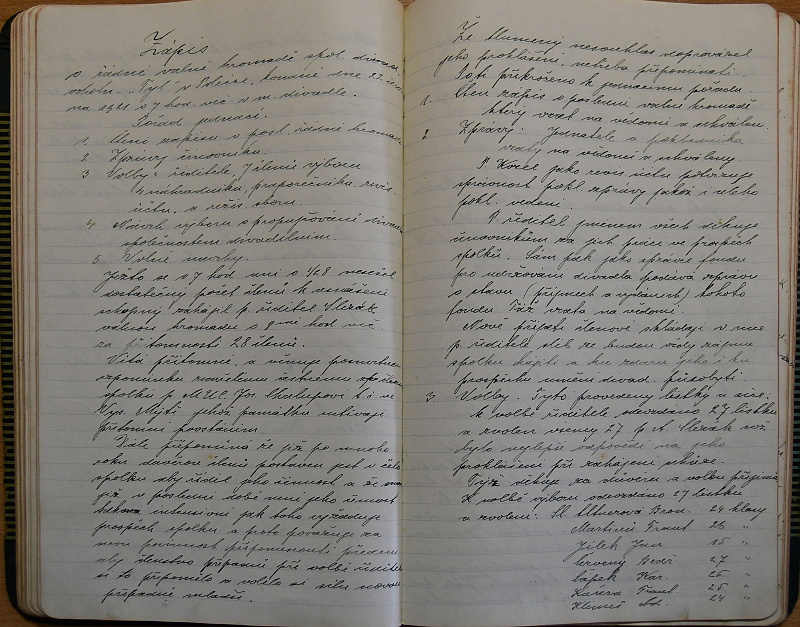 Zápis
o řádné valné hromadě spol. divad.
na 1921 s 7 hod. več. v m. divadle.
Pořad jednací.
1. Čtení zápisu o posl. řádné hromadě
2 Zprávy činovníků.
3 Volby: ředitele, 7 členů výboru
4 náhradníků, praporečníka, revis.
účtů, a režis. sboru.
4 Návrh výboru s propůjčování divadla
společnostem divadelním.
5 Volné návrhy.
Ježto se s 7 hod. ani s 1/2 8 nesešel
dostatečný počet členů k
zahájil p. ředitel Slezák
valnou hromadu s 8 hod več.
za přítomnosti 28 členů.
Vítá přítomné, a věnuje posmrtnou
vzpomínku zesnulému čestnému
spolku p. MUC. Jos. Chalupovi t. č. ve
Vys. Mýtě jehož památku uctívají
přítomní povstáním.
Dále připomíná že již po mnoho
roků důvěrou členů postaven jest v čelo
spolku aby řídil jeho činnost a že
již v poslední době není jeho činnost
intensivní jak toho vyžaduje
prospěch spolku a proto považuje za
svou povinnost připomenouti předem
aby členstvo případně při volbě ředitele
si to připomělo a volilo si sílu novou
případně mladší.
Že všeobecný nesouhlas doprovázel
jeho prohlášení, netřeba připomínati.
Poté přikročeno k pořadu.
1. Čten zápis o poslední valné hromadě
který vzat na vědomí a schválen.
2 Zprávy: Jednatele a pokladníka
vzaty na vědomí a schváleny.
P. Kocel jako revis. účtů potvrzuje
správnost pokl. zprávy jakož i celého
pokl. vedení.
P. ředitel jménem všech děkuje
činovníkům za jich práce ve prospěch
spolku. Sám pak jako správce fondu
pro udržování divadla podává zprávu
o stavu (příjmech a vydáních) tohoto
fondu. Též vzata na vědomí.
Nově přijatí členové skládají v ruce
p. ředitele slib že budou vždy zájmy
spolku hájiti a ku zdaru jeho i ku
prospěchu umění divad. působiti.
3 Volby. Tyto provedeny lístky a sice:
K volbě ředitele odevzdáno 27 lístků
a zvolen všemi 27 p. A. Slezák což
bylo nejlepší odpovědí na jeho
prohlášení při zahájení schůze.
Týž děkuje za důvěru a volbu přijímá
K volbě výboru odevzdáno 27 lístků
a zvoleni: Sl. Altnerová Bron. 24 hlasy
Martinů Frant 26 "
Jílek Jan 15 "
Červený Bedř 27 "
Čápek Kar. 25 "
Kučera Frant 25 "
Kleneš Ad. 24 "